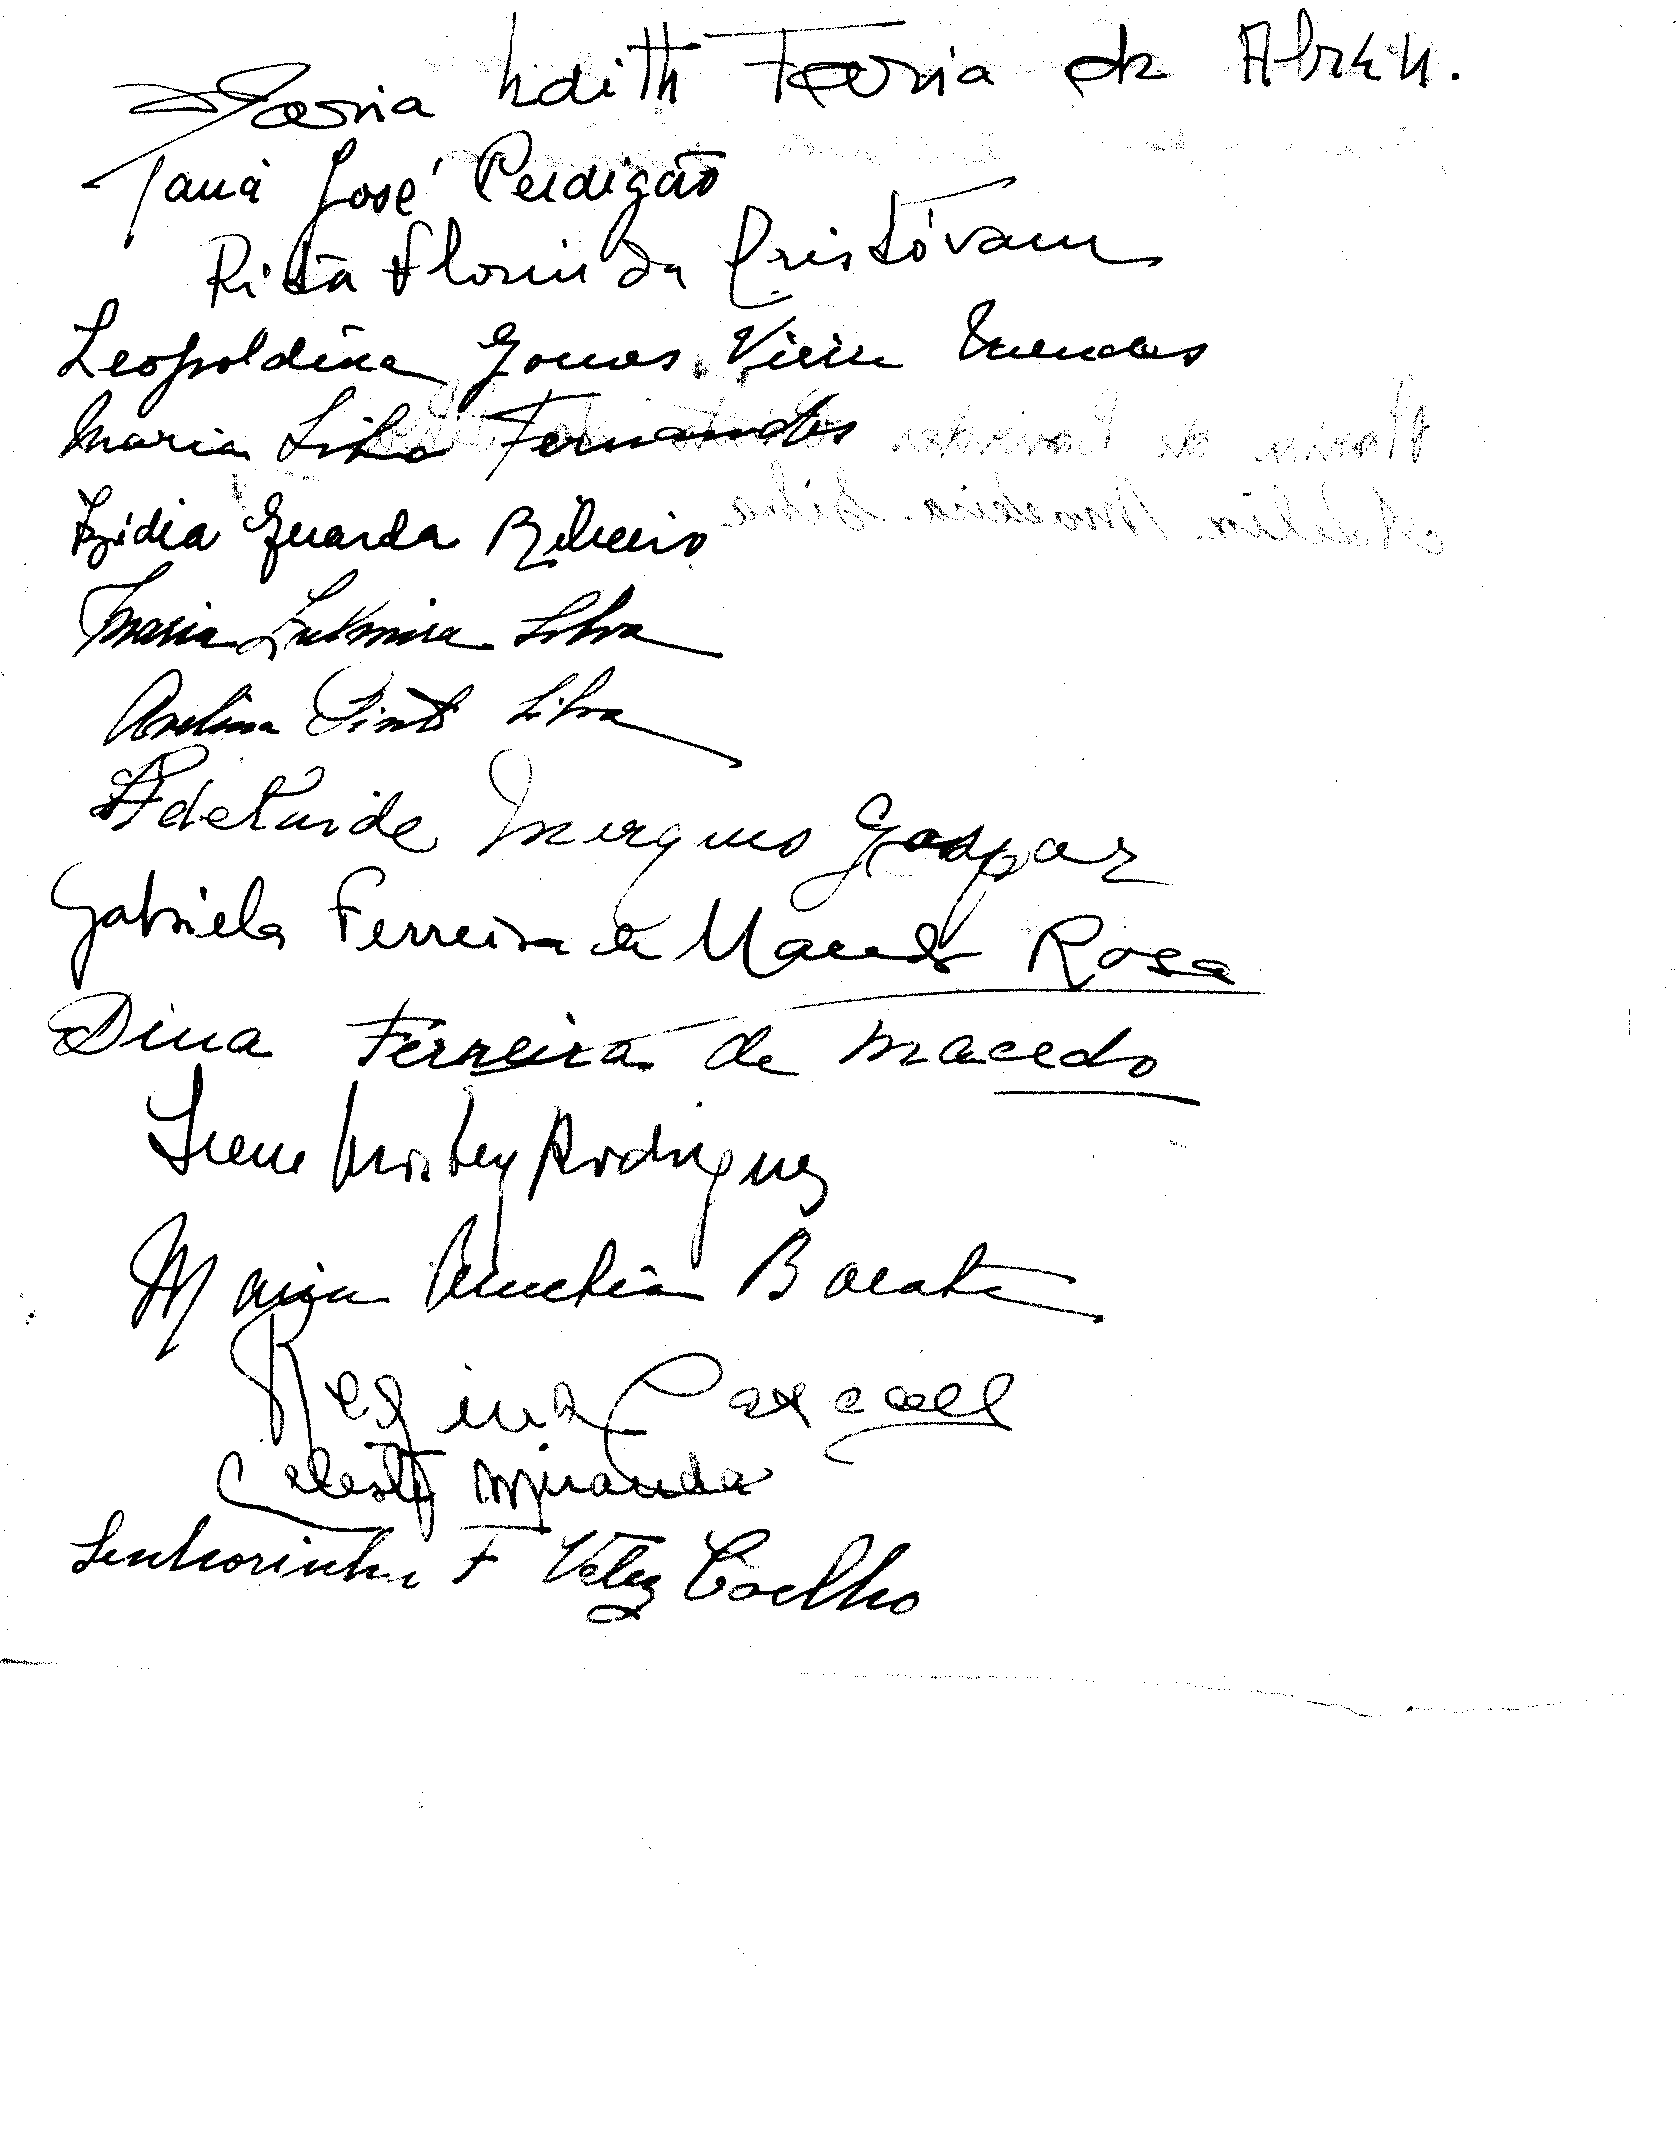 Maria Judith Faria de Abreu.
José Perdigão
Rita Florinda Cristóvam
Leopoldina Gomes Vieira Mendes
Maria Silva Fernandes
Lídia Guarda Ribeiro
Maria Silva
Avelina Pinto Silva
Adelaide Marques Gaspar
Gabriela Ferreira de Macedo Rosa
Dina Ferreira de Macedo
Irene Rodrigues
Maria Barata
Regina
Celeste Miranda
Senhorinha F Velez Coelho